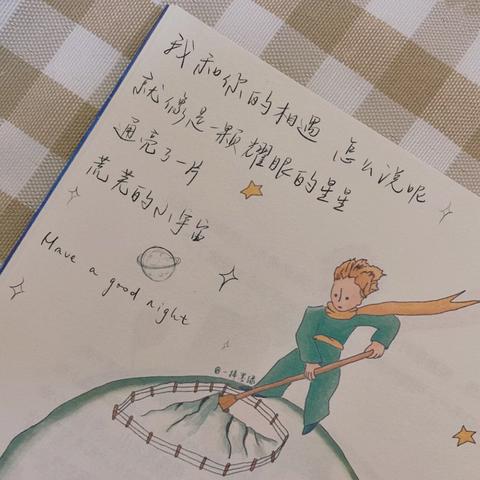 我和你的相遇 怎么说呢
就像是一颗耀眼的星星
通亮了一片
荒芜的小宇宙
Have a good night